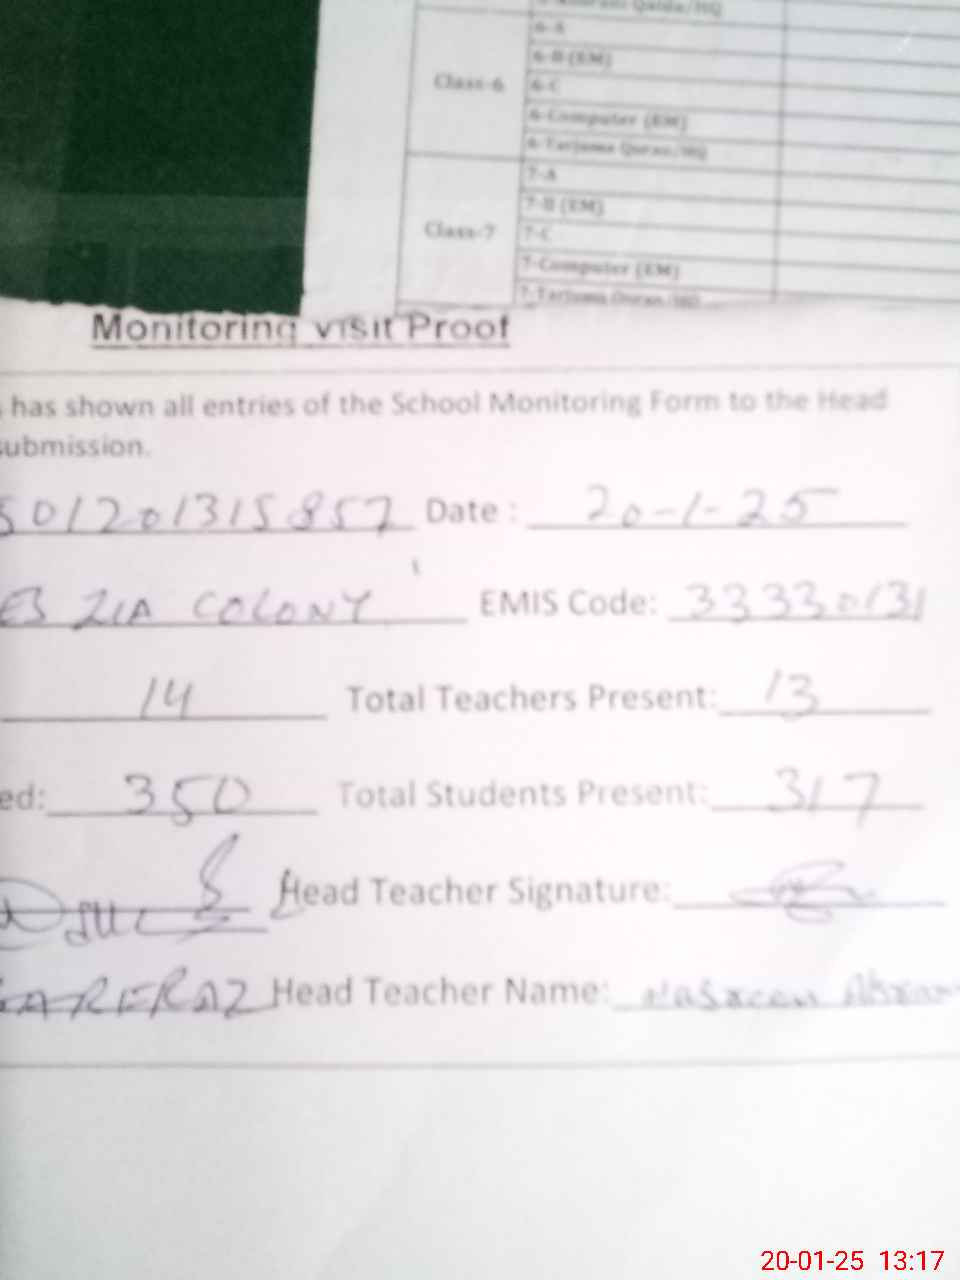 6-A
6-B (EM)
Class-6 6-C
6-Computer (EM)
6-Tarjuma Quran/HQ
7-A
7-B (EM)
Class-7 7-C
7-Computer (EM)
7-Tarjuma Quran/HQ
Monitoring Visit Proof
has shown all entries of the School Monitoring Form to the Head
submission.
501201315857 Date : 20-1-25
ES ZIA COLONY EMIS Code: 33330131
14 Total Teachers Present: 13
ed: 350 Total Students Present: 317
Head Teacher Signature:
Head Teacher Name: Nasreen Akram
20-01-25 13:17